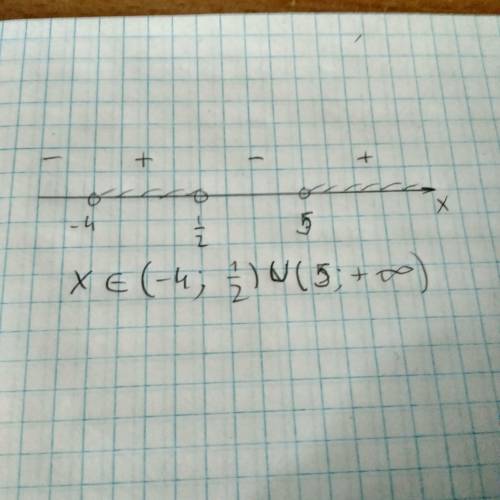 - + - +
-4 1/2 5 x
x ∈ (-4; 1/2) ∪ (5; +∞)